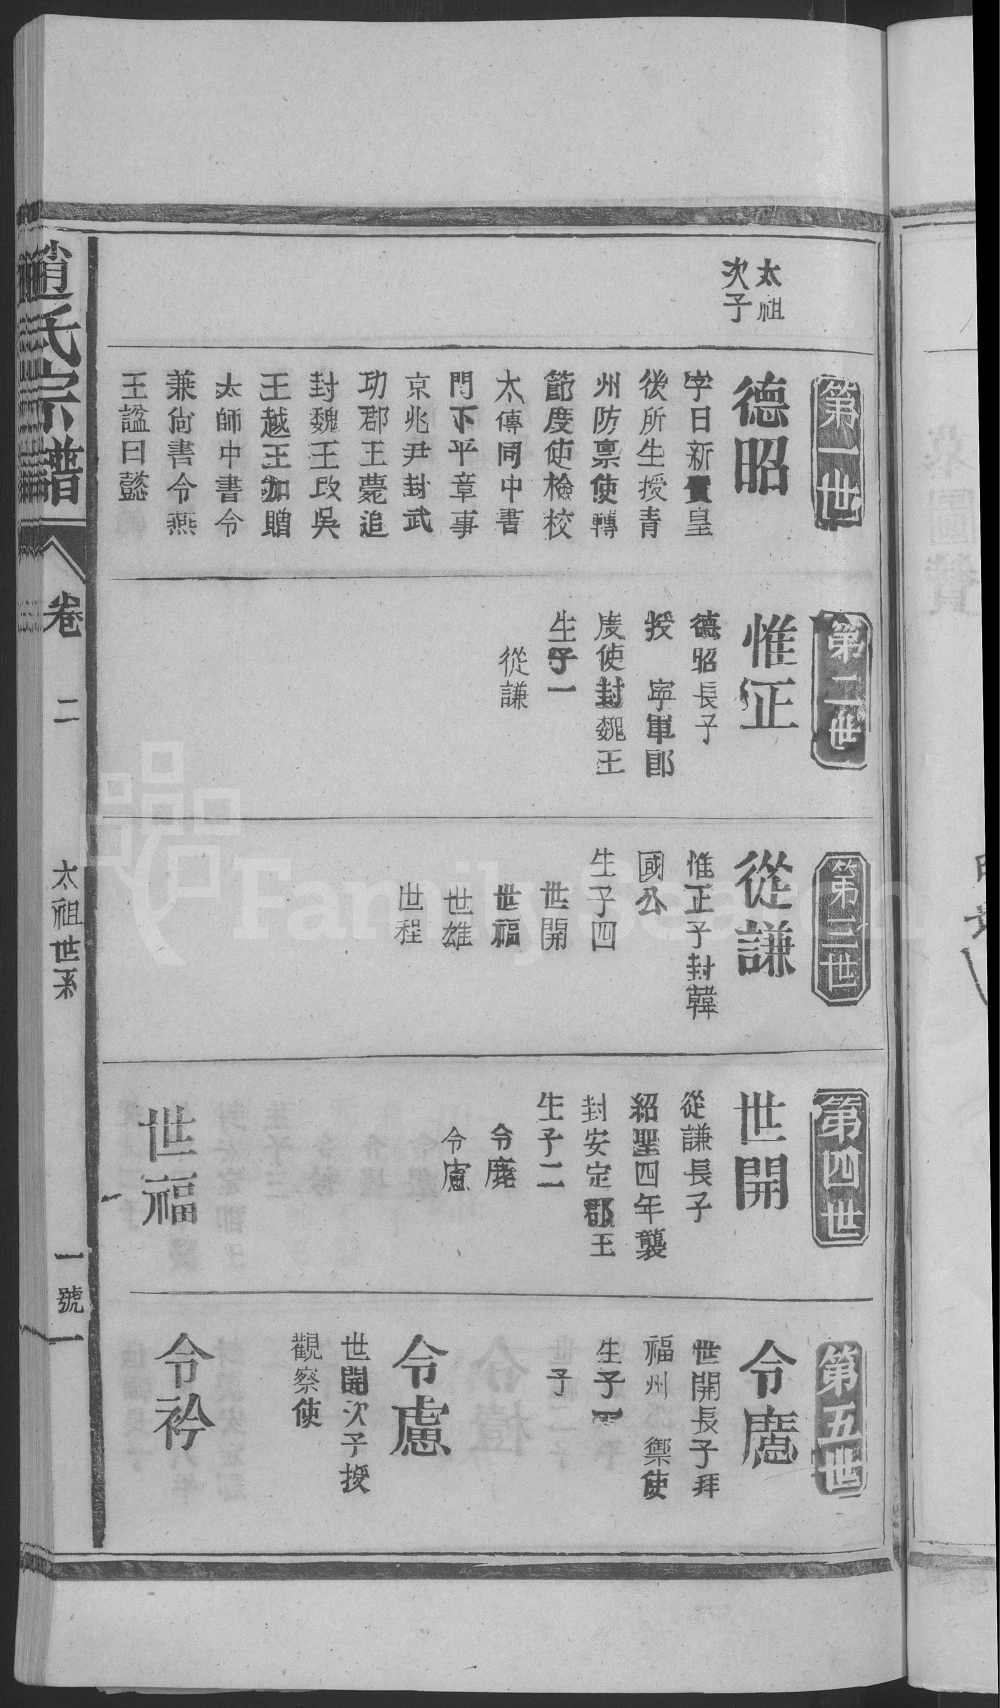 太祖
次子
第一世
德昭
字日新賀皇
後所生授青
州防禀使轉
節度使檢校
太傳同中書
門下平章事
京兆尹封武
功郡王薨追
封魏王改吳
王越王加贈
太師中書令
兼尙書令燕
王諡曰懿
第二世
惟正
德昭長子
授 寧軍郎
度使封魏王
生子一
從謙
第三世
從謙
惟正子封韓
國公
生子四
世開
世福
世雄
世程
第四世
世開
從謙長子
紹聖四年襲
封安定郡王
生子二
令廣
令慮
世福
第五世
令廣
世開長子拜
福州 禦使
生子
子
令慮
世開次子授
觀察使
令衿
趙氏宗譜
卷 二
太祖世系
一號
FamilySearch